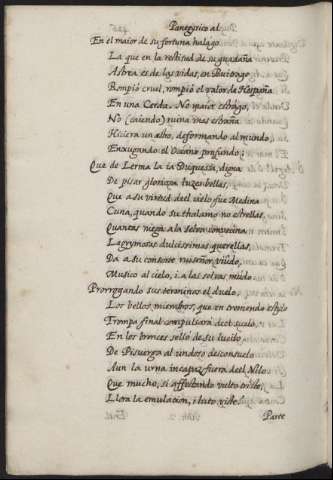 Panegyrico al
En el maior de su fortuna halago
La que en la rectitud de su guadaña
Astrea es de las vidas, en Buitrago
Rompió cruel, rompió el valor de Hespaña
En una Cerda. No maior estrago,
No (caiendo) ruina mas estraña
Hiciera un astro, deformando al mundo,
Enxugando el Oceano profundo;
Que de Lerma la ia Duquesa, digna
De pisar gloriosa luzes bellas,
Que a su virtud del cielo fue Medina
Cuna, quando su thalamo no estrellas,
Quantas niega a la selva convecina
Lagrymosas dulcissimas querellas,
Da a su consorte ruiseñor viudo,
Musico al cielo, i a las selvas mudo.
Prorrogando sus terminos el duelo,
Los bellos miembros, que en tremendo estylo
Trompa final compulsará del suelo,
En los bronces selló de su lucilo;
De Pisuerga al undoso desconsuelo
Aun la urna incapaz fuera del Nilo.
Que mucho, si affectando vulto triste,
Llora la emulacion, i luto viste.
Parte